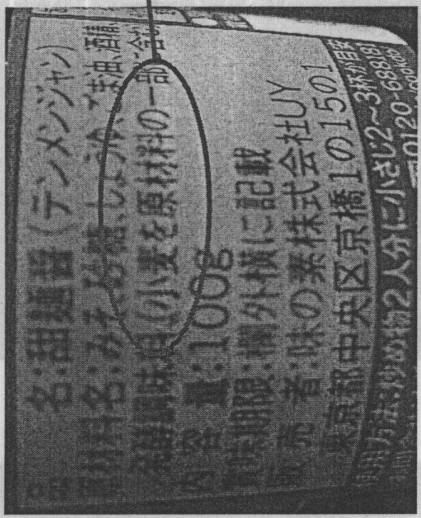 品 名:甜麺醤(テンメンジャン)
原材料名:みそ、砂糖、しょうゆ、ごま油、酒精、
発酵調味料(小麦を原材料の一部に含
内 容 量:100g
賞味期限:欄外横に記載
販 売 者:味の素株式会社UY
東京都中央区京橋1の15の1
使用方法:炒め物2人分に小さじ2~3杯が目安
0120-688